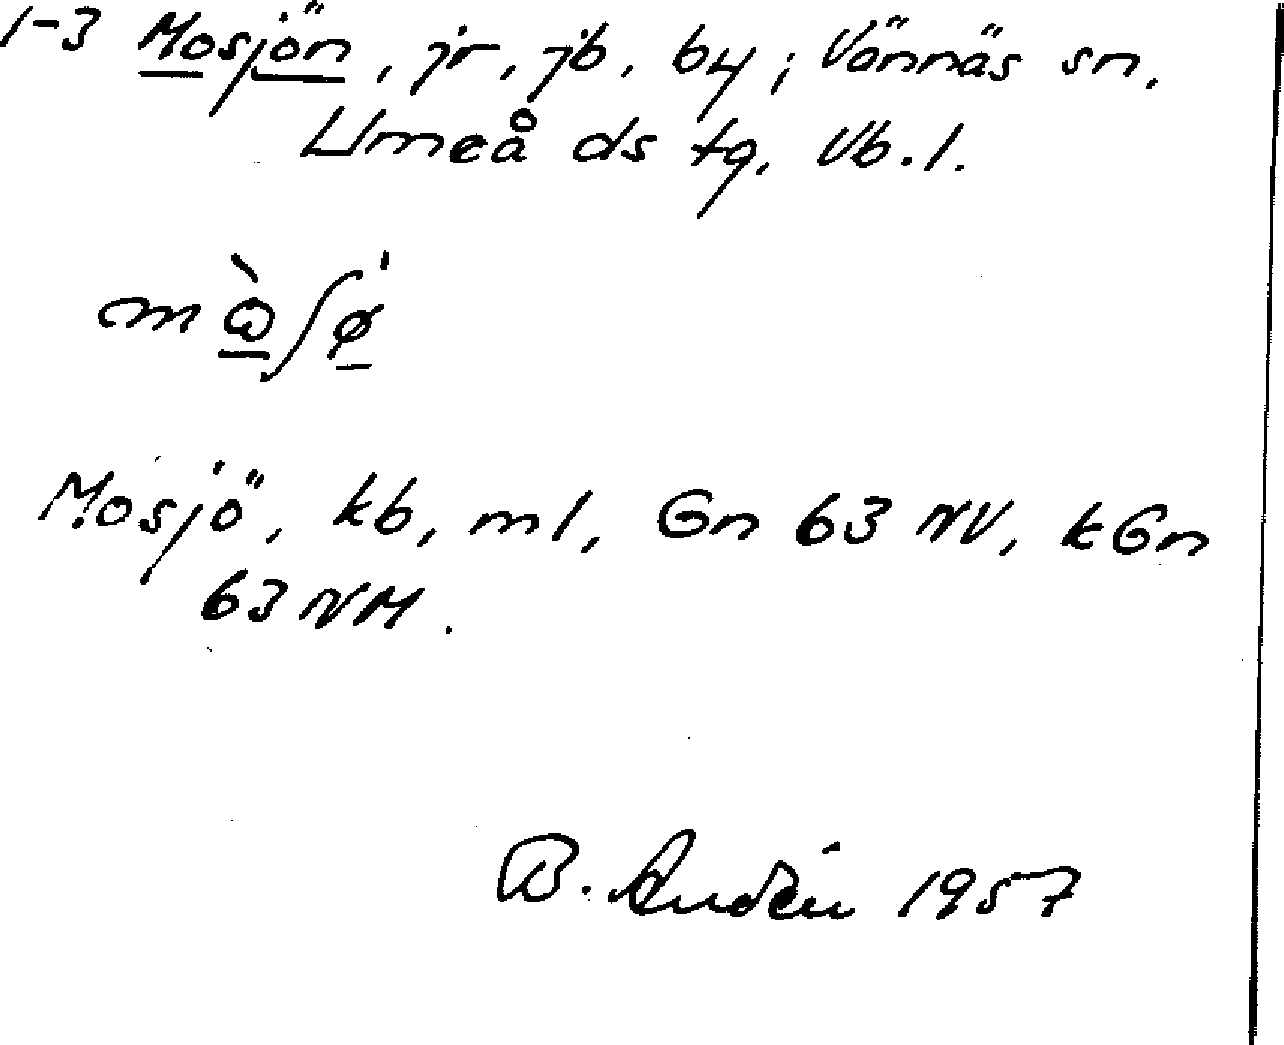 1-3 Mosjön, jr, jb, by; Vännäs sn.
Umeå ds tg. Vb. l.
Mosjö, kb, ml, Gn 63 NV, kGn
63 NM.
B. 1957